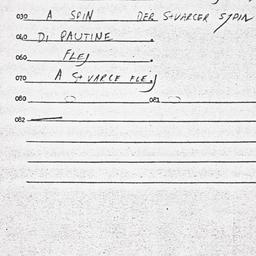 030 A SPIN DER STVARCER SPIN
040 DI PAUTINE
060 FLEJ
070 A STVARCE FLEJ
080 081
082